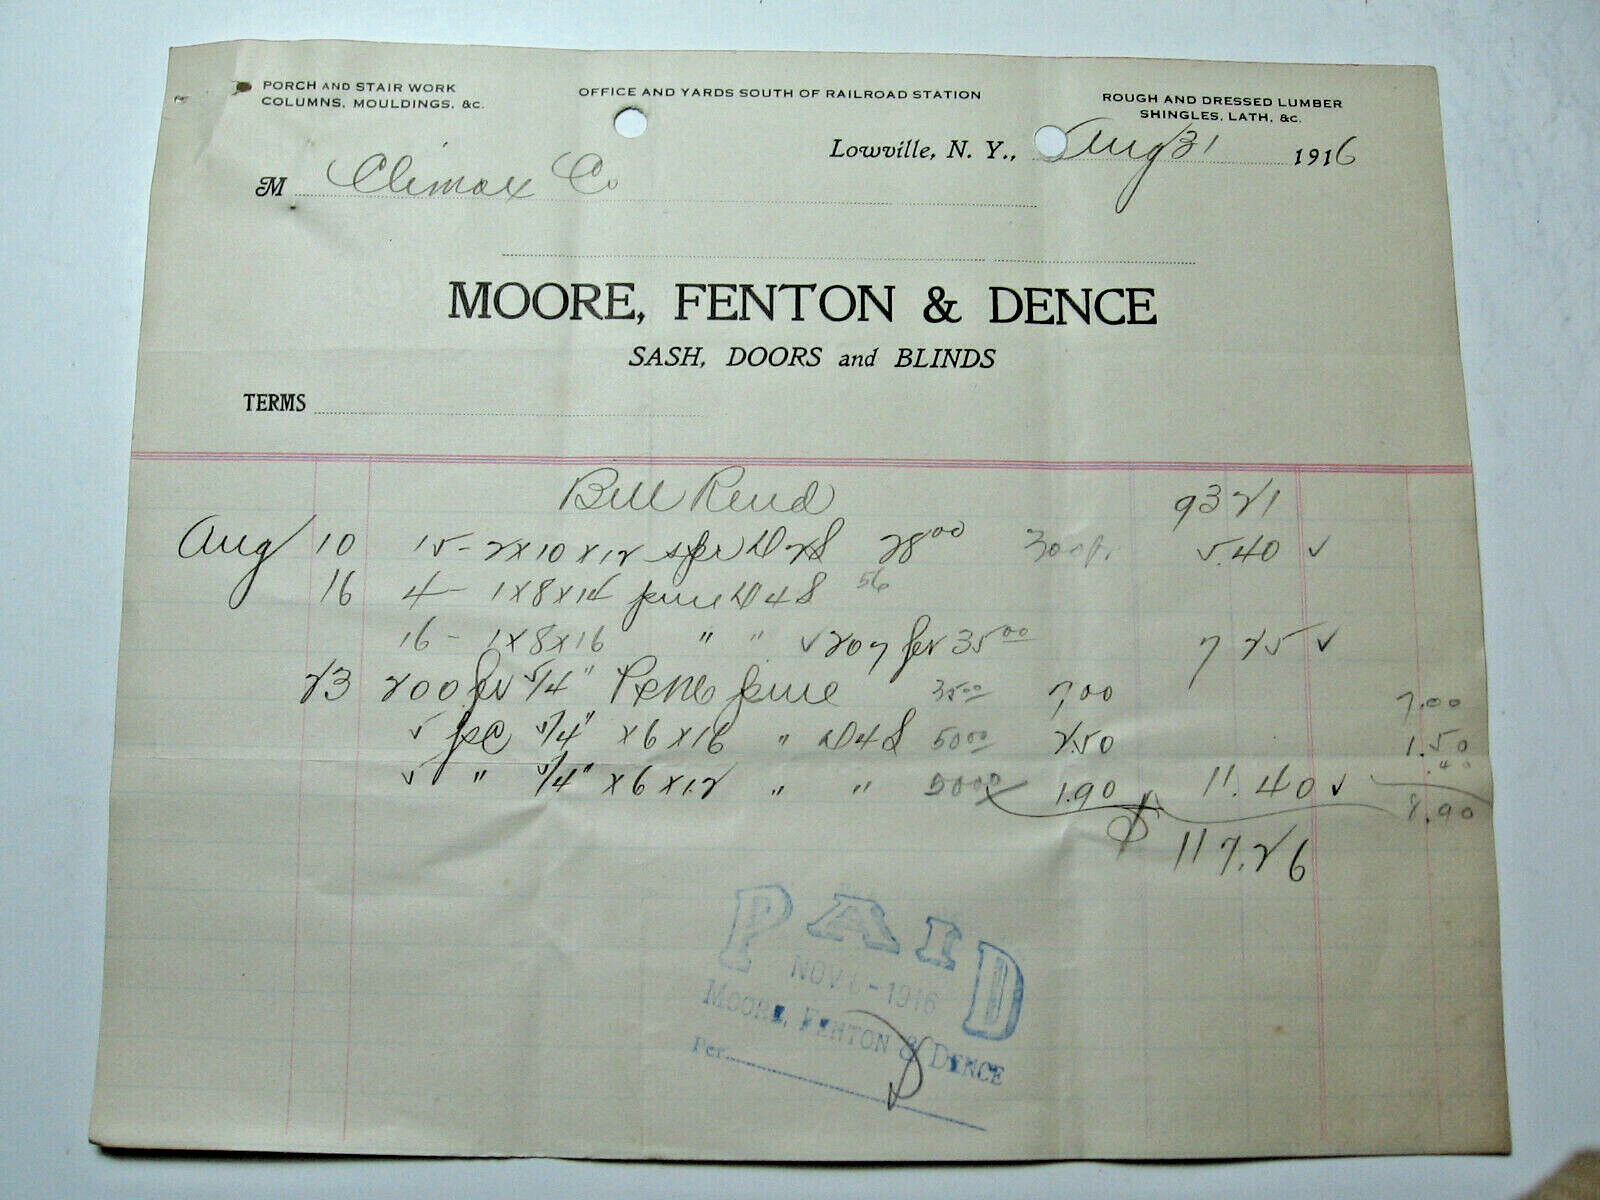 PORCH AND STAIR WORK
COLUMNS, MOULDINGS, &c.
OFFICE AND YARDS SOUTH OF RAILROAD STATION
ROUGH AND DRESSED LUMBER
SHINGLES, LATH, &c.
Lowville, N. Y., Aug 31 1916
M Climax Co
MOORE, FENTON & DENCE
SASH, DOORS and BLINDS
TERMS
Bill Rend 93 21
Aug 10 15 - 2 x 10 x 12 spr D 2 S 28 00 300 5.40 ✓
16 4 - 1 x 8 x 14 pine D 4 S 56
16 - 1 x 8 x 16 " " ✓ 207 35 00 7 25 ✓
23 200 5/4" pine 35 00 7.00 7.00
5 pc 5/4" x 6 x 16 " D 4 S 50 00 2.50 1.50
5 " 5/4" x 6 x 12 " " 50 00 1.90 11.40 ✓ .40
8.90
$ 117.26
PAID
NOV - 1916
MOORE, FENTON & DENCE
Per